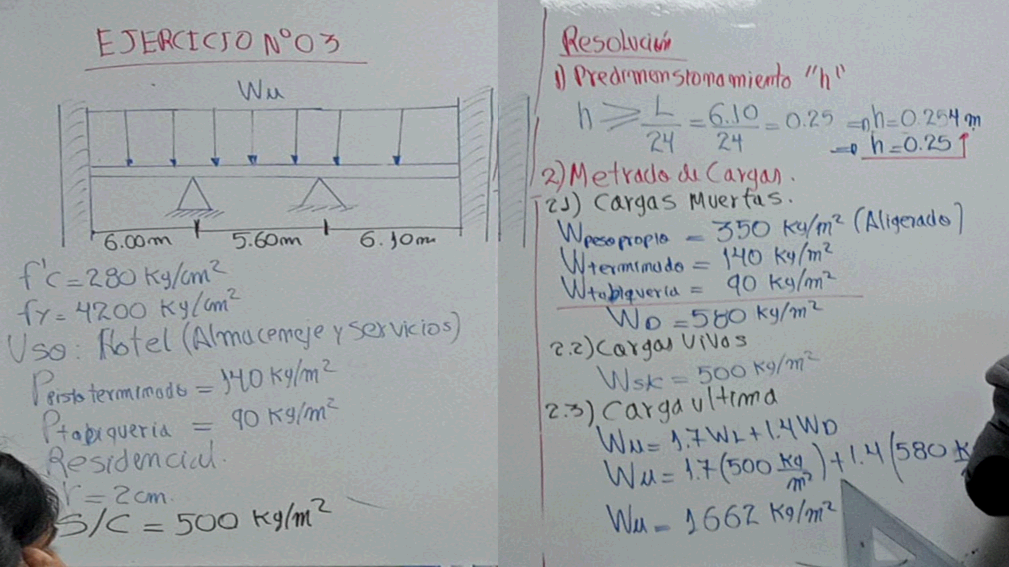 EJERCICIO N°03
Wu
6.00m 5.60m 6.10m
f'c = 280 Kg/cm²
fy = 4200 Kg/cm²
Uso: Hotel (Almacenaje y servicios)
Ppisoterminado = 140 Kg/m²
Ptabiqueria = 90 Kg/m²
Residencial.
r = 2cm.
S/C = 500 Kg/m²
Resolución
1) Predimensionamiento "h"
h ≥ L/24 = 6.10/24 = 0.25 ⇒ h = 0.254 m
⇒ h = 0.25↑
2) Metrado de Cargas.
2.1) Cargas Muertas.
Wpesopropio = 350 Kg/m² (Aligerado)
Wterminado = 140 Kg/m²
Wtabiqueria = 90 Kg/m²
WD = 580 Kg/m²
2.2) Cargas Vivas
Wsk = 500 Kg/m²
2.3) Carga ultima
Wu = 1.7WL + 1.4WD
Wu = 1.7(500 Kg/m²) + 1.4(580 K
Wu = 1662 Kg/m²